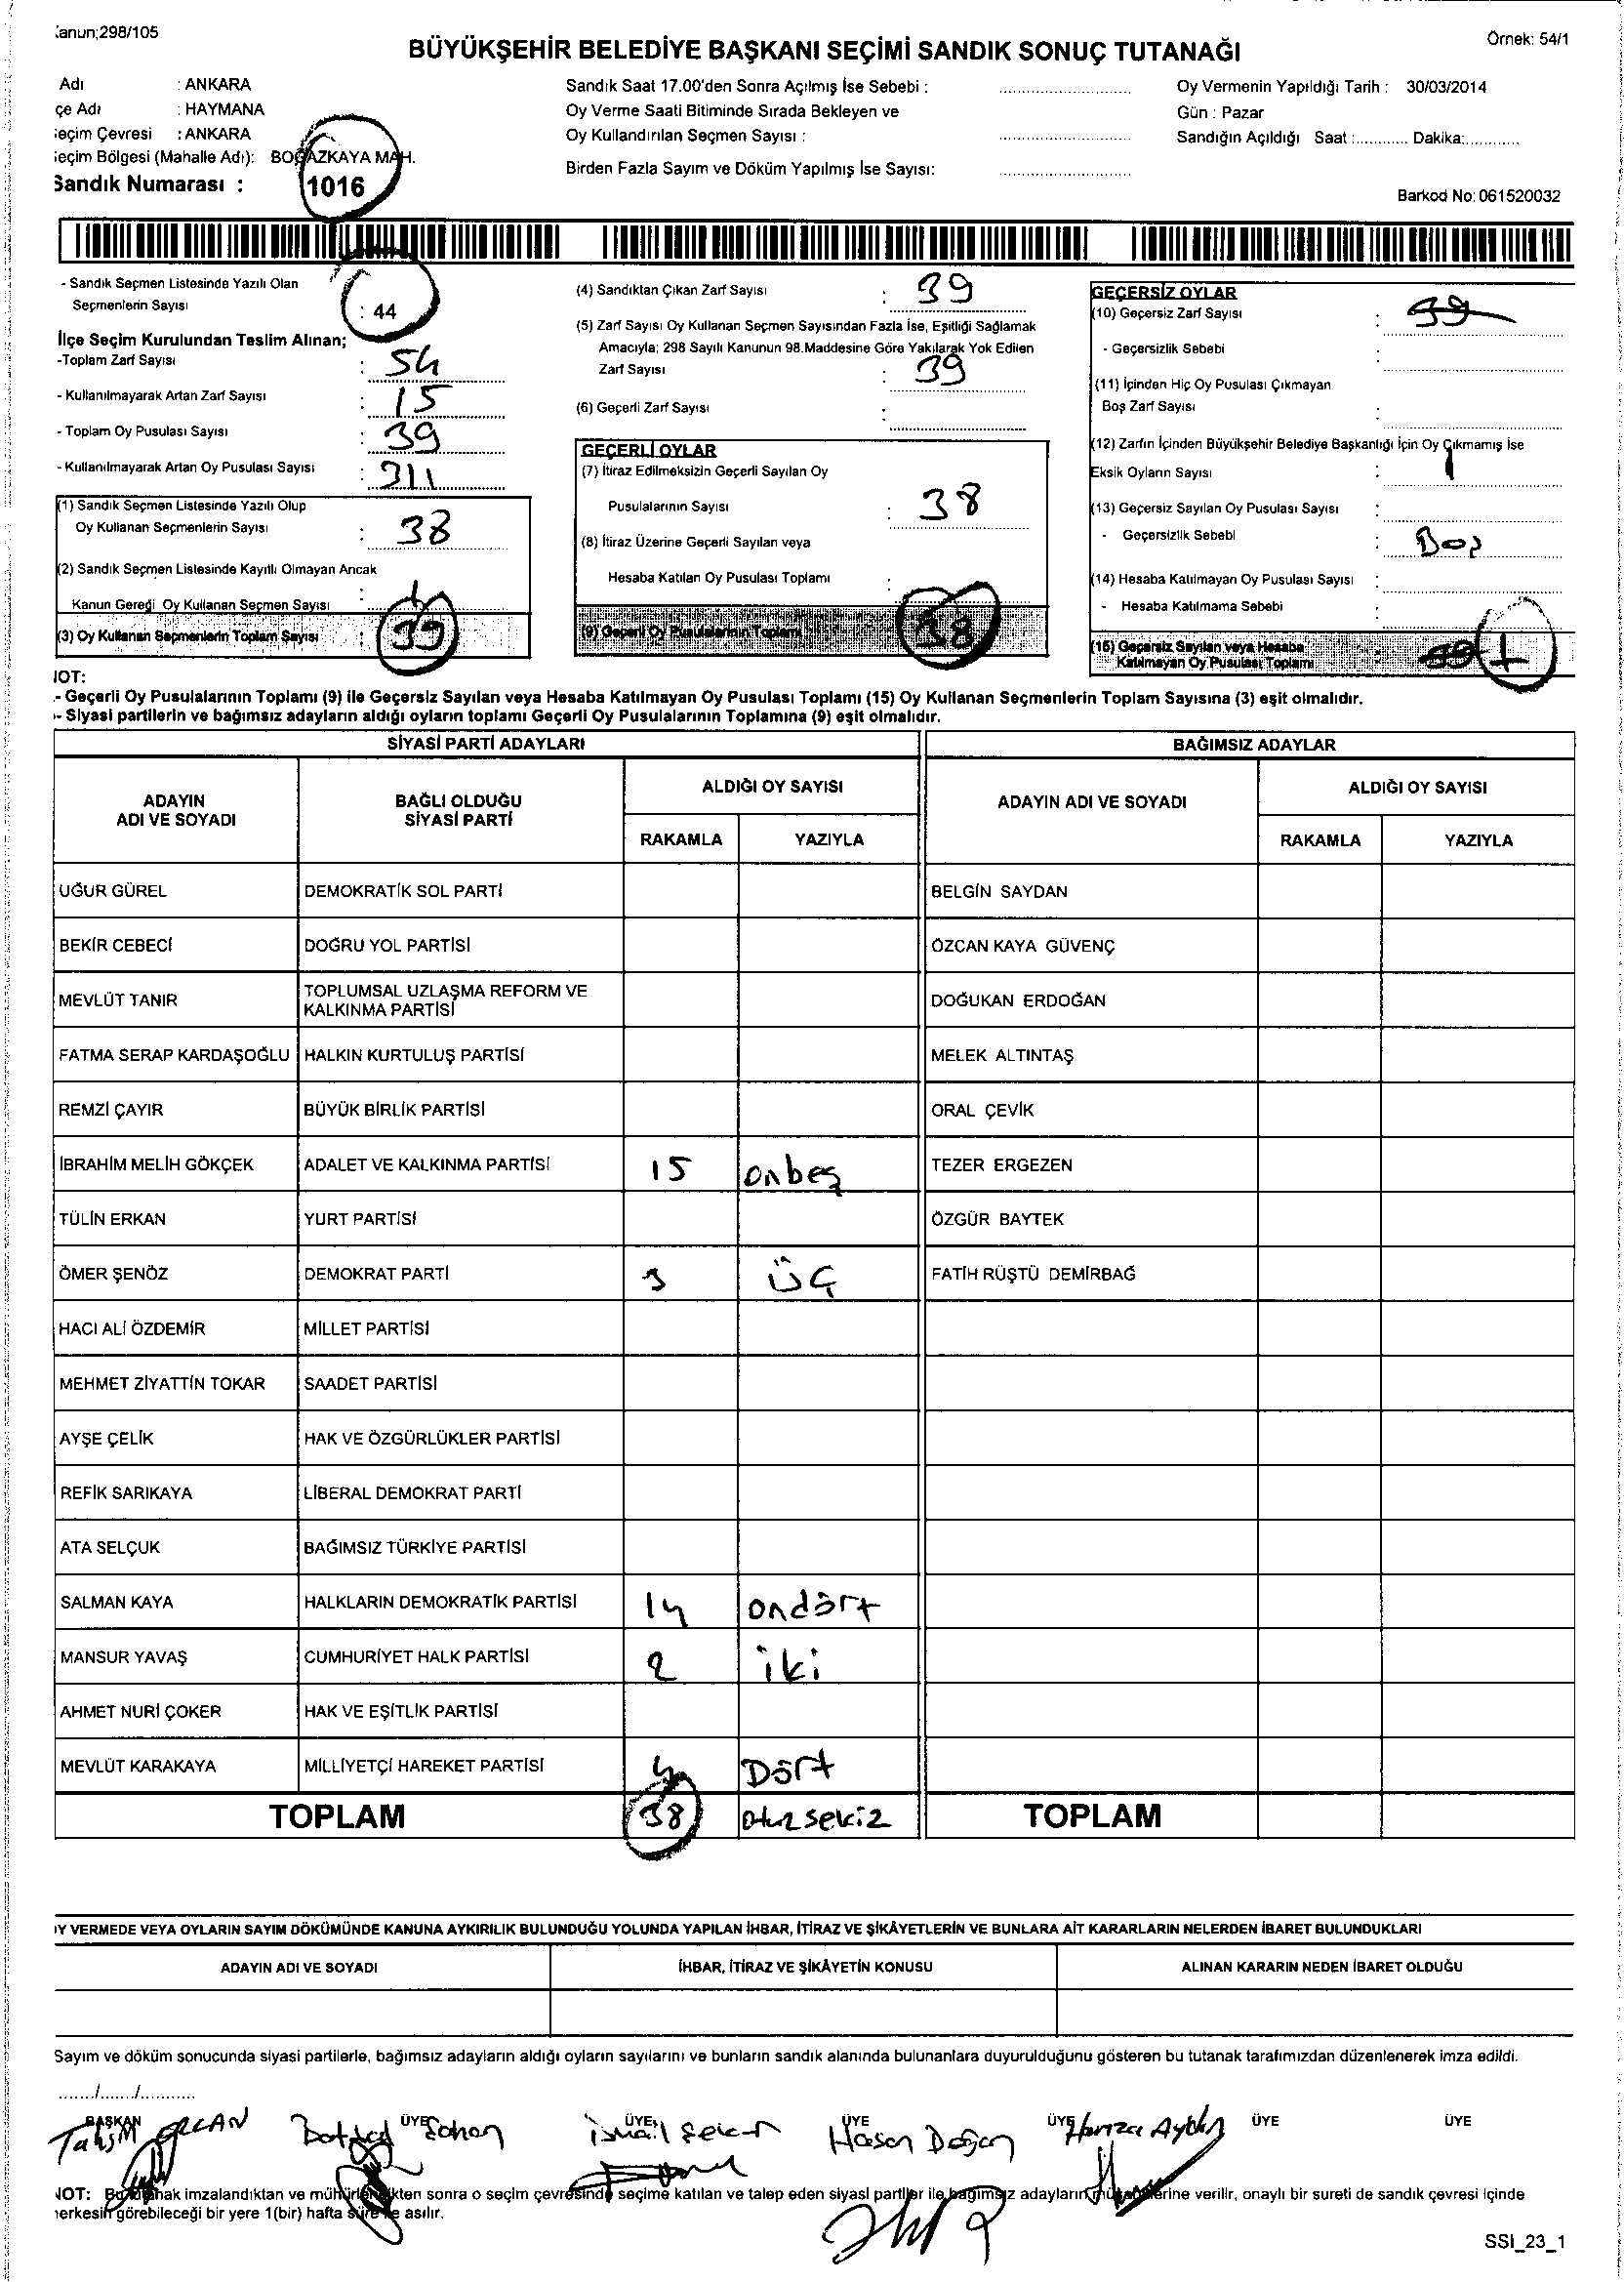 anun;298/105
Örnek: 54/1
BÜYÜKŞEHİR BELEDİYE BAŞKANI SEÇİMİ SANDIK SONUÇ TUTANAĞI
Adı : ANKARA
çe Adı : HAYMANA
eçim Çevresi : ANKARA
eçim Bölgesi (Mahalle Adı): BOĞAZKAYA MAH.
Sandık Numarası : 1016
Sandık Saat 17.00'den Sonra Açılmış İse Sebebi :
Oy Verme Saati Bitiminde Sırada Bekleyen ve
Oy Kullandırılan Seçmen Sayısı :
Birden Fazla Sayım ve Döküm Yapılmış İse Sayısı:
Oy Vermenin Yapıldığı Tarih : 30/03/2014
Gün : Pazar
Sandığın Açıldığı Saat :............ Dakika:............
Barkod No: 061520032
- Sandık Seçmen Listesinde Yazılı Olan
Seçmenlerin Sayısı : 44
İlçe Seçim Kurulundan Teslim Alınan;
-Toplam Zarf Sayısı : 54
- Kullanılmayarak Artan Zarf Sayısı : 15
- Toplam Oy Pusulası Sayısı : 39
- Kullanılmayarak Artan Oy Pusulası Sayısı : 311
(1) Sandık Seçmen Listesinde Yazılı Olup
Oy Kullanan Seçmenlerin Sayısı : 38
(2) Sandık Seçmen Listesinde Kayıtlı Olmayan Ancak
Kanun Gereği Oy Kullanan Seçmen Sayısı : 1
(3) Oy Kullanan Seçmenlerin Toplam Sayısı : 39
(4) Sandıktan Çıkan Zarf Sayısı : 39
(5) Zarf Sayısı Oy Kullanan Seçmen Sayısından Fazla İse, Eşitliği Sağlamak
Amacıyla; 298 Sayılı Kanunun 98.Maddesine Göre Yakılarak Yok Edilen
Zarf Sayısı : 39
(6) Geçerli Zarf Sayısı :
GEÇERLİ OYLAR
(7) İtiraz Edilmeksizin Geçerli Sayılan Oy
Pusulalarının Sayısı : 38
(8) İtiraz Üzerine Geçerli Sayılan veya
Hesaba Katılan Oy Pusulası Toplamı :
(9) Geçerli Oy Pusulalarının Toplamı 38
GEÇERSİZ OYLAR
(10) Geçersiz Zarf Sayısı : 39
- Geçersizlik Sebebi :
(11) İçinden Hiç Oy Pusulası Çıkmayan
Boş Zarf Sayısı :
(12) Zarfın İçinden Büyükşehir Belediye Başkanlığı İçin Oy Çıkmamış İse
Eksik Oyların Sayısı : 1
(13) Geçersiz Sayılan Oy Pusulası Sayısı :
- Geçersizlik Sebebi : Boş
(14) Hesaba Katılmayan Oy Pusulası Sayısı :
- Hesaba Katılmama Sebebi :
(15) Geçersiz Sayılan veya Hesaba
Katılmayan Oy Pusulası Toplamı : 39 1
NOT:
- Geçerli Oy Pusulalarının Toplamı (9) ile Geçersiz Sayılan veya Hesaba Katılmayan Oy Pusulası Toplamı (15) Oy Kullanan Seçmenlerin Toplam Sayısına (3) eşit olmalıdır.
- Siyasi partilerin ve bağımsız adayların aldığı oyların toplamı Geçerli Oy Pusulalarının Toplamına (9) eşit olmalıdır.
SİYASİ PARTİ ADAYLARI BAĞIMSIZ ADAYLAR
ADAYIN ADI VE SOYADI BAĞLI OLDUĞU SİYASİ PARTİ ALDIĞI OY SAYISI ADAYIN ADI VE SOYADI ALDIĞI OY SAYISI
RAKAMLA YAZIYLA RAKAMLA YAZIYLA
UĞUR GÜREL DEMOKRATİK SOL PARTİ BELGİN SAYDAN
BEKİR CEBECİ DOĞRU YOL PARTİSİ ÖZCAN KAYA GÜVENÇ
MEVLÜT TANIR TOPLUMSAL UZLAŞMA REFORM VE KALKINMA PARTİSİ DOĞUKAN ERDOĞAN
FATMA SERAP KARDAŞOĞLU HALKIN KURTULUŞ PARTİSİ MELEK ALTINTAŞ
REMZİ ÇAYIR BÜYÜK BİRLİK PARTİSİ ORAL ÇEVİK
İBRAHİM MELİH GÖKÇEK ADALET VE KALKINMA PARTİSİ 15 onbeş TEZER ERGEZEN
TÜLİN ERKAN YURT PARTİSİ ÖZGÜR BAYTEK
ÖMER ŞENÖZ DEMOKRAT PARTİ 3 ÜÇ FATİH RÜŞTÜ DEMİRBAĞ
HACI ALİ ÖZDEMİR MİLLET PARTİSİ
MEHMET ZİYATTİN TOKAR SAADET PARTİSİ
AYŞE ÇELİK HAK VE ÖZGÜRLÜKLER PARTİSİ
REFİK SARIKAYA LİBERAL DEMOKRAT PARTİ
ATA SELÇUK BAĞIMSIZ TÜRKİYE PARTİSİ
SALMAN KAYA HALKLARIN DEMOKRATİK PARTİSİ 14 ondört
MANSUR YAVAŞ CUMHURİYET HALK PARTİSİ 2 iki
AHMET NURİ ÇOKER HAK VE EŞİTLİK PARTİSİ
MEVLÜT KARAKAYA MİLLİYETÇİ HAREKET PARTİSİ 4 Dört
TOPLAM 38 otuzsekiz TOPLAM
OY VERMEDE VEYA OYLARIN SAYIM DÖKÜMÜNDE KANUNA AYKIRILIK BULUNDUĞU YOLUNDA YAPILAN İHBAR, İTİRAZ VE ŞİKÂYETLERİN VE BUNLARA AİT KARARLARIN NELERDEN İBARET BULUNDUKLARI
ADAYIN ADI VE SOYADI İHBAR, İTİRAZ VE ŞİKÂYETİN KONUSU ALINAN KARARIN NEDEN İBARET OLDUĞU
Sayım ve döküm sonucunda siyasi partilerle, bağımsız adayların aldığı oyların sayılarını ve bunların sandık alanında bulunanlara duyurulduğunu gösteren bu tutanak tarafımızdan düzenlenerek imza edildi.
......./......./...........
BAŞKAN ÜYE ÜYE ÜYE ÜYE ÜYE ÜYE
İsmail Hasan Doğan Hamza
NOT: Bu tutanak imzalandıktan ve mühürlendikten sonra o seçim çevresinde seçime katılan ve talep eden siyasi partiler ile bağımsız adayların müşahitlerine verilir, onaylı bir sureti de sandık çevresi içinde
herkesin görebileceği bir yere 1(bir) hafta süre ile asılır.
SSI_23_1